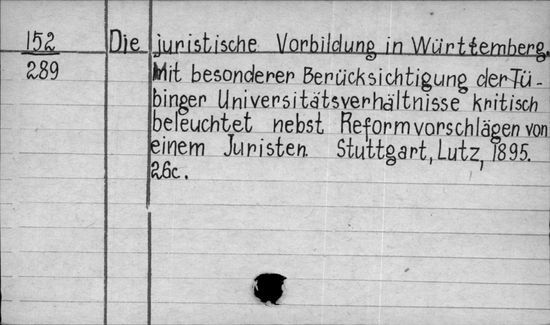 152
289
Die juristische Vorbildung in Württemberg.
Mit besonderer Berücksichtigung der Tü-
binger Universitätsverhältnisse kritisch
beleuchtet nebst Reformvorschlägen von
einem Juristen. Stuttgart, Lutz, 1895.
26c.